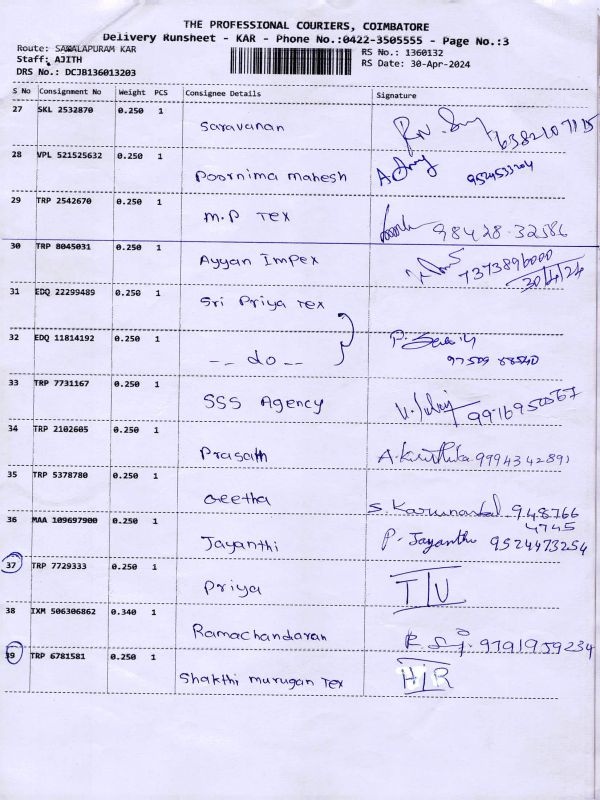 THE PROFESSIONAL COURIERS, COIMBATORE
Delivery Runsheet - KAR - Phone No.:0422-3505555 - Page No.:3
Route: SAVALAPURAM KAR
Staff: AJITH
DRS No.: DCJB136013203
RS No.: 1360132
RS Date: 30-Apr-2024
S No Consignment No Weight PCS Consignee Details Signature
27 SKL 2532870 0.250 1 Saravanan 6382107115
28 VPL 521525632 0.250 1 Poornima mahesh
29 TRP 2542670 0.250 1 M.P Tex 98428.32586
30 TRP 8045031 0.250 1 Ayyan Impex 7373896000
30/4/24
31 EDQ 22299489 0.250 1 Sri Priya Tex
32 EDQ 11814192 0.250 1 -- do -- P.
33 TRP 7731167 0.250 1 SSS Agency 9916950567
34 TRP 2102605 0.250 1 Prasath A.Kiruthika 9994342891
35 TRP 5378780 0.250 1 Geetha S. 948766
4745
36 MAA 109697900 0.250 1 Jayanthi P. Jayanthi 9524473254
37 TRP 7729333 0.250 1 Priya T/U
38 IXM 506306862 0.340 1 Ramachandaran 9791959234
39 TRP 6781581 0.250 1 Shakthi murugan Tex H/R